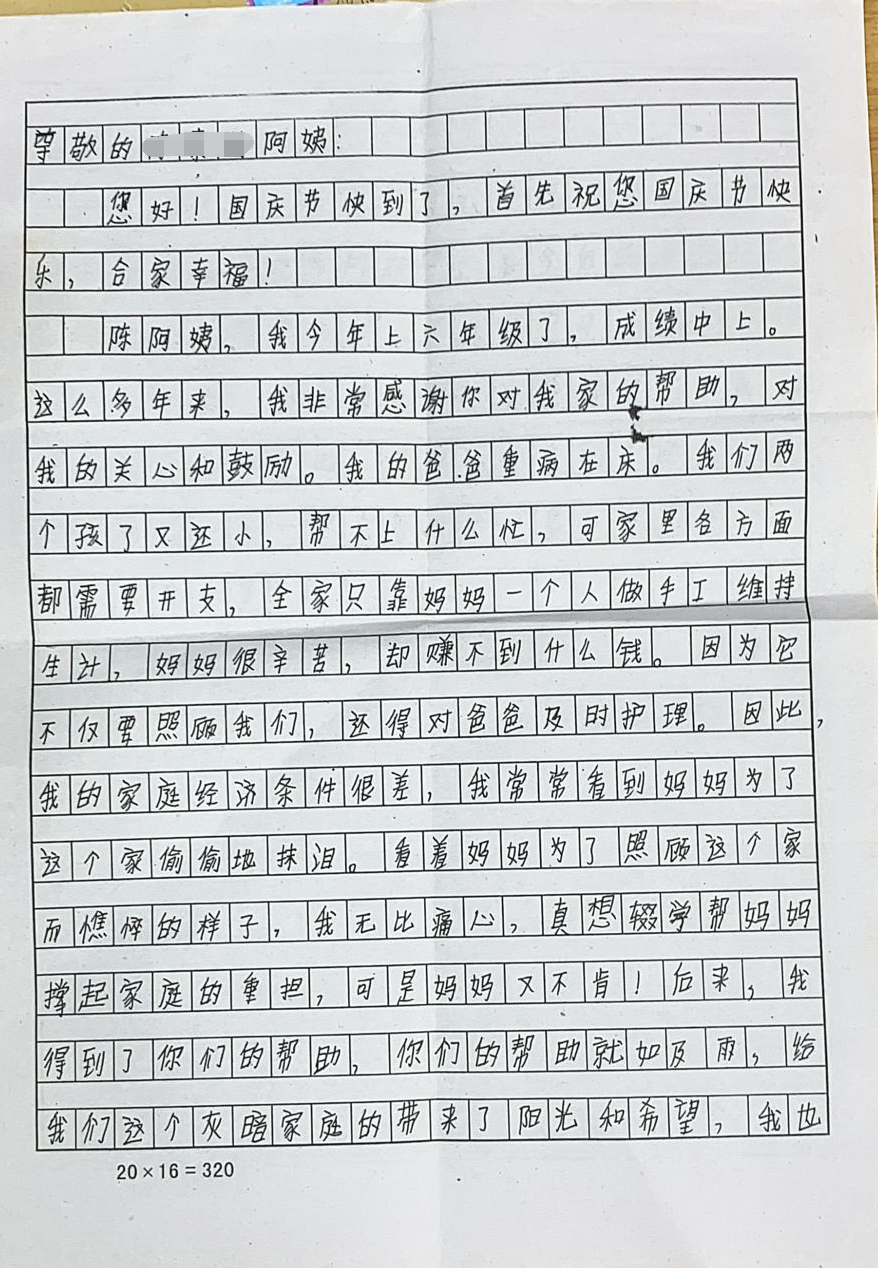 尊敬的阿姨：
您好！国庆节快到了，首先祝您国庆节快
乐，合家幸福！
陈阿姨，我今年上六年级了，成绩中上。
这么多年来，我非常感谢你对我家的帮助，对
我的关心和鼓励。我的爸爸重病在床。我们两
个孩了又还小，帮不上什么忙，可家里各方面
都需要开支，全家只靠妈妈一个人做手工维持
生计，妈妈很辛苦，却赚不到什么钱。因为它
不仅要照顾我们，还得对爸爸及时护理。因此，
我的家庭经济条件很差，我常常看到妈妈为了
这个家偷偷地抹泪。看着妈妈为了照顾这个家
而憔悴的样子，我无比痛心，真想辍学帮妈妈
撑起家庭的重担，可是妈妈又不肯！后来，我
得到了你们的帮助，你们的帮助就如及雨，给
我们这个灰暗家庭的带来了阳光和希望，我也
20×16=320